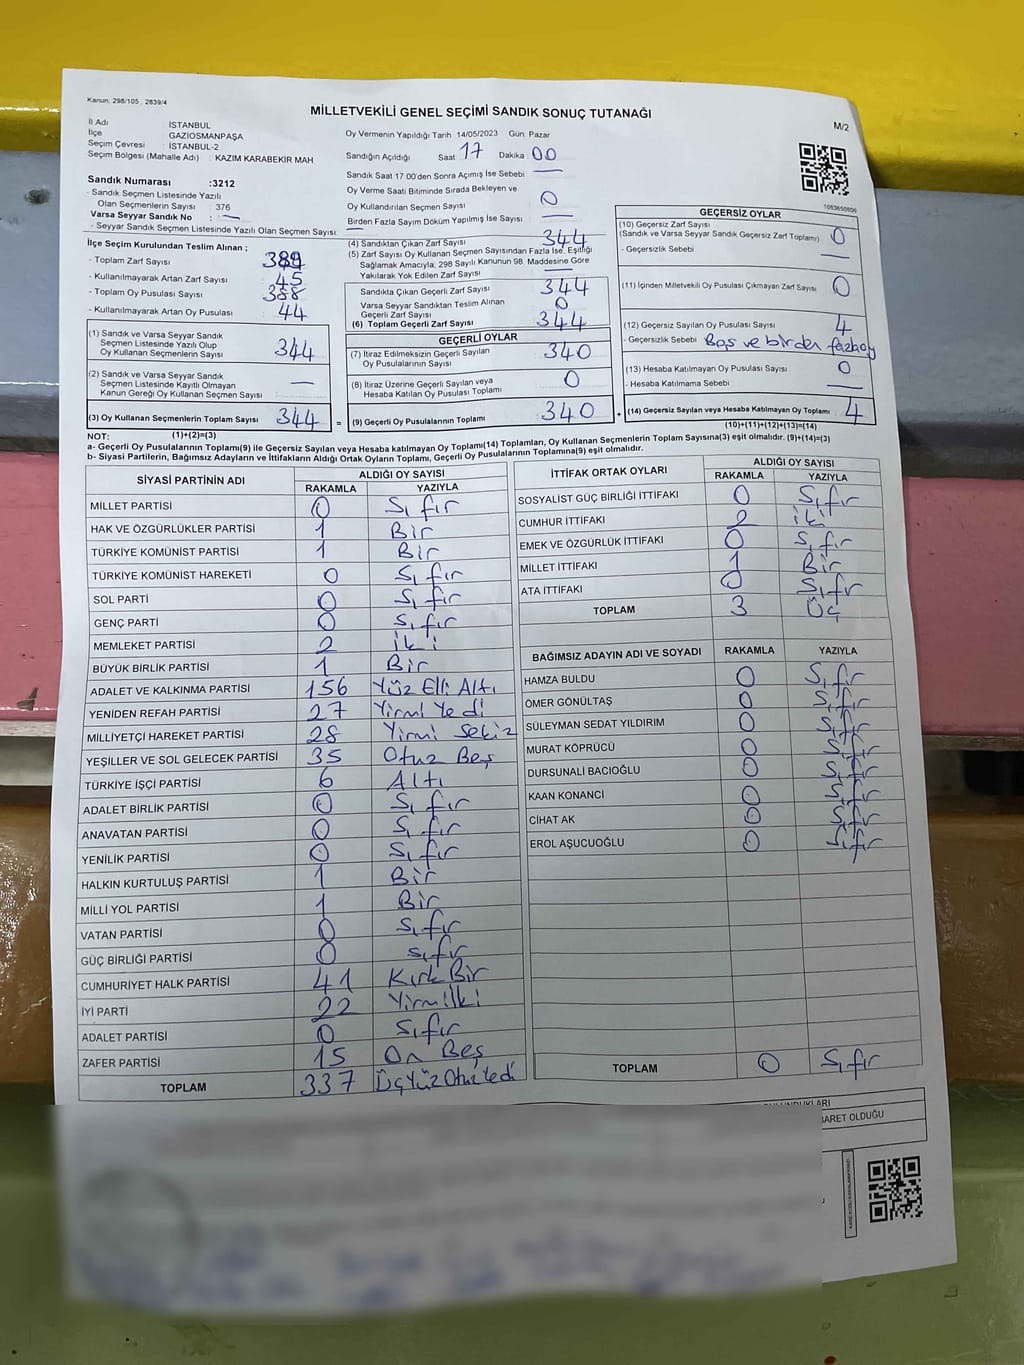 Kanun: 298/105 , 2839/4
MİLLETVEKİLİ GENEL SEÇİMİ SANDIK SONUÇ TUTANAĞI
M/2
İl Adı İSTANBUL
İlçe GAZİOSMANPAŞA
Seçim Çevresi : İSTANBUL-2
Seçim Bölgesi (Mahalle Adı) : KAZIM KARABEKİR MAH
Sandık Numarası :3212
- Sandık Seçmen Listesinde Yazılı
Olan Seçmenlerin Sayısı : 376
Varsa Seyyar Sandık No : —
- Seyyar Sandık Seçmen Listesinde Yazılı Olan Seçmen Sayısı :
Oy Vermenin Yapıldığı Tarih : 14/05/2023 Gün: Pazar
Sandığın Açıldığı Saat : 17 Dakika : 00
Sandık Saat 17 00'den Sonra Açılmış İse Sebebi —
Oy Verme Saati Bitiminde Sırada Bekleyen ve
Oy Kullandırılan Seçmen Sayısı 0
Birden Fazla Sayım Döküm Yapılmış İse Sayısı —
İlçe Seçim Kurulundan Teslim Alınan ;
- Toplam Zarf Sayısı 389
- Kullanılmayarak Artan Zarf Sayısı 45
- Toplam Oy Pusulası Sayısı 388
- Kullanılmayarak Artan Oy Pusulası 44
(1) Sandık ve Varsa Seyyar Sandık
Seçmen Listesinde Yazılı Olup
Oy Kullanan Seçmenlerin Sayısı 344
(2) Sandık ve Varsa Seyyar Sandık
Seçmen Listesinde Kayıtlı Olmayan
Kanun Gereği Oy Kullanan Seçmen Sayısı —
(3) Oy Kullanan Seçmenlerin Toplam Sayısı 344 =
(4) Sandıktan Çıkan Zarf Sayısı 344
(5) Zarf Sayısı Oy Kullanan Seçmen Sayısından Fazla İse, Eşitliği
Sağlamak Amacıyla, 298 Sayılı Kanunun 98. Maddesine Göre
Yakılarak Yok Edilen Zarf Sayısı —
Sandıkta Çıkan Geçerli Zarf Sayısı 344
Varsa Seyyar Sandıktan Teslim Alınan
Geçerli Zarf Sayısı 0
(6) Toplam Geçerli Zarf Sayısı 344
GEÇERLİ OYLAR
(7) İtiraz Edilmeksizin Geçerli Sayılan
Oy Pusulalarının Sayısı 340
(8) İtiraz Üzerine Geçerli Sayılan veya
Hesaba Katılan Oy Pusulası Toplamı 0
(9) Geçerli Oy Pusulalarının Toplamı 340 +
1063650606
GEÇERSİZ OYLAR
(10) Geçersiz Zarf Sayısı
(Sandık ve Varsa Seyyar Sandık Geçersiz Zarf Toplamı) 0
- Geçersizlik Sebebi —
(11) İçinden Milletvekili Oy Pusulası Çıkmayan Zarf Sayısı 0
(12) Geçersiz Sayılan Oy Pusulası Sayısı 4
- Geçersizlik Sebebi Boş ve birden fazla oy
(13) Hesaba Katılmayan Oy Pusulası Sayısı 0
- Hesaba Katılmama Sebebi —
(14) Geçersiz Sayılan veya Hesaba Katılmayan Oy Toplamı 4
(10)+(11)+(12)+(13)=(14)
NOT: (1)+(2)=(3)
a- Geçerli Oy Pusulalarının Toplamı(9) ile Geçersiz Sayılan veya Hesaba katılmayan Oy Toplamı(14) Toplamları, Oy Kullanan Seçmenlerin Toplam Sayısına(3) eşit olmalıdır. (9)+(14)=(3)
b- Siyasi Partilerin, Bağımsız Adayların ve İttifakların Aldığı Ortak Oyların Toplamı, Geçerli Oy Pusulalarının Toplamına(9) eşit olmalıdır.
SİYASİ PARTİNİN ADI ALDIĞI OY SAYISI
RAKAMLA YAZIYLA
MİLLET PARTİSİ 0 Sıfır
HAK VE ÖZGÜRLÜKLER PARTİSİ 1 Bir
TÜRKİYE KOMÜNİST PARTİSİ 1 Bir
TÜRKİYE KOMÜNİST HAREKETİ 0 Sıfır
SOL PARTİ 0 Sıfır
GENÇ PARTİ 0 Sıfır
MEMLEKET PARTİSİ 2 İki
BÜYÜK BİRLİK PARTİSİ 1 Bir
ADALET VE KALKINMA PARTİSİ 156 Yüz Elli Altı
YENİDEN REFAH PARTİSİ 27 Yirmi Yedi
MİLLİYETÇİ HAREKET PARTİSİ 28 Yirmi Sekiz
YEŞİLLER VE SOL GELECEK PARTİSİ 35 Otuz Beş
TÜRKİYE İŞÇİ PARTİSİ 6 Altı
ADALET BİRLİK PARTİSİ 0 Sıfır
ANAVATAN PARTİSİ 0 Sıfır
YENİLİK PARTİSİ 0 Sıfır
HALKIN KURTULUŞ PARTİSİ 1 Bir
MİLLİ YOL PARTİSİ 1 Bir
VATAN PARTİSİ 0 Sıfır
GÜÇ BİRLİĞİ PARTİSİ 0 Sıfır
CUMHURİYET HALK PARTİSİ 41 Kırk Bir
İYİ PARTİ 22 Yirmi İki
ADALET PARTİSİ 0 Sıfır
ZAFER PARTİSİ 15 On Beş
TOPLAM 337 Üçyüz Otuz Yedi
İTTİFAK ORTAK OYLARI ALDIĞI OY SAYISI
RAKAMLA YAZIYLA
SOSYALİST GÜÇ BİRLİĞİ İTTİFAKI 0 Sıfır
CUMHUR İTTİFAKI 2 iki
EMEK VE ÖZGÜRLÜK İTTİFAKI 0 Sıfır
MİLLET İTTİFAKI 1 Bir
ATA İTTİFAKI 0 Sıfır
TOPLAM 3 Üç
BAĞIMSIZ ADAYIN ADI VE SOYADI RAKAMLA YAZIYLA
HAMZA BULDU 0 Sıfır
ÖMER GÖNÜLTAŞ 0 Sıfır
SÜLEYMAN SEDAT YILDIRIM 0 Sıfır
MURAT KÖPRÜCÜ 0 Sıfır
DURSUNALİ BACIOĞLU 0 Sıfır
KAAN KONANCİ 0 Sıfır
CİHAT AK 0 Sıfır
EROL AŞUCUOĞLU 0 Sıfır
TOPLAM 0 Sıfır
OLDUĞU